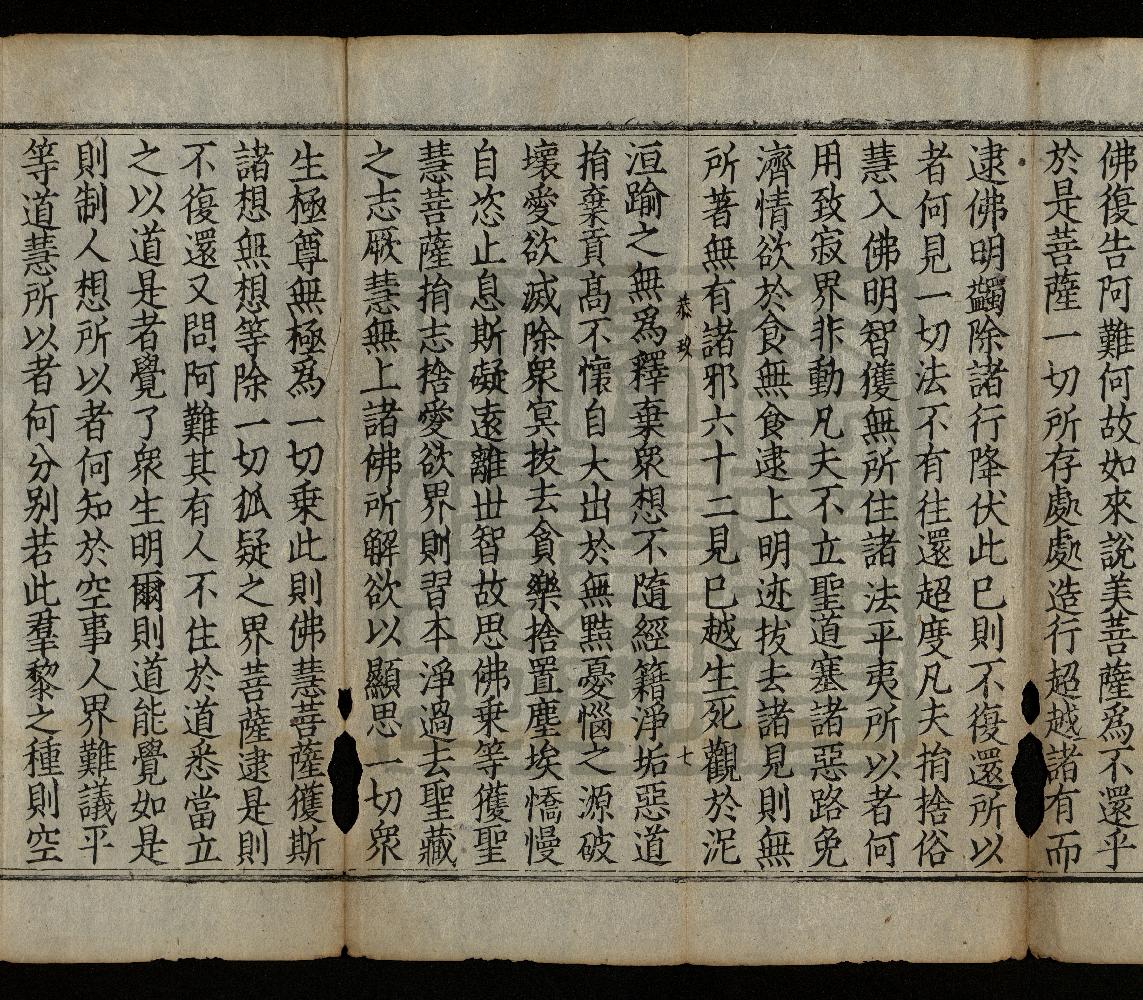 佛復告阿難何故如來說美菩薩為不還乎
於是菩薩一切所存處處造行超越諸有而
逮佛明蠲除諸行降伏此已則不復還所以
者何見一切法不有往還超度凡夫捐捨俗
慧入佛明智獲無所住諸法平夷所以者何
用致寂界非動凡夫不立聖道塞諸惡路免
濟情欲於食無食逮上明迹拔去諸見則無
所著無有諸邪六十二見已越生死觀於泥
恭 玖 七
洹踰之無為釋棄眾想不隨經籍淨垢惡道
捐棄貢高不懷自大出於無黠憂惱之源破
壞愛欲滅除眾冥拔去貪樂捨置塵埃憍慢
自恣止息斯礙遠離世智故思佛乘等獲聖
慧菩薩捐志捨愛欲界則習本淨過去聖藏
之志厥慧無上諸佛所解欲以顯思一切眾
生極尊無極為一切乘此則佛慧菩薩獲斯
諸想無想等除一切狐疑之界菩薩逮是則
不復還又問阿難其有人不住於道悉當立
之以道是者覺了眾生明爾則道能覺如是
則制人想所以者何知於空事人界難議平
等道慧所以者何分別若此羣黎之種則空